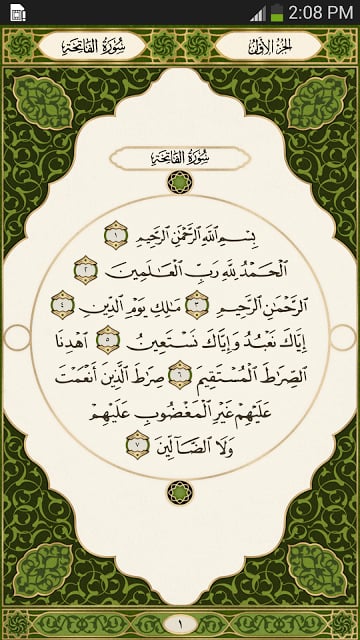 2:08 PM
الجزء الأول
سورة الفاتحة
سورة الفاتحة
بِسْمِ اللَّهِ الرَّحْمَٰنِ الرَّحِيمِ ١
الْحَمْدُ لِلَّهِ رَبِّ الْعَالَمِينَ ٢
الرَّحْمَٰنِ الرَّحِيمِ ٣ مَالِكِ يَوْمِ الدِّينِ ٤
إِيَّاكَ نَعْبُدُ وَإِيَّاكَ نَسْتَعِينُ ٥ اهْدِنَا
الصِّرَاطَ الْمُسْتَقِيمَ ٦ صِرَاطَ الَّذِينَ أَنْعَمْتَ
عَلَيْهِمْ غَيْرِ الْمَغْضُوبِ عَلَيْهِمْ
وَلَا الضَّالِّينَ ٧
١